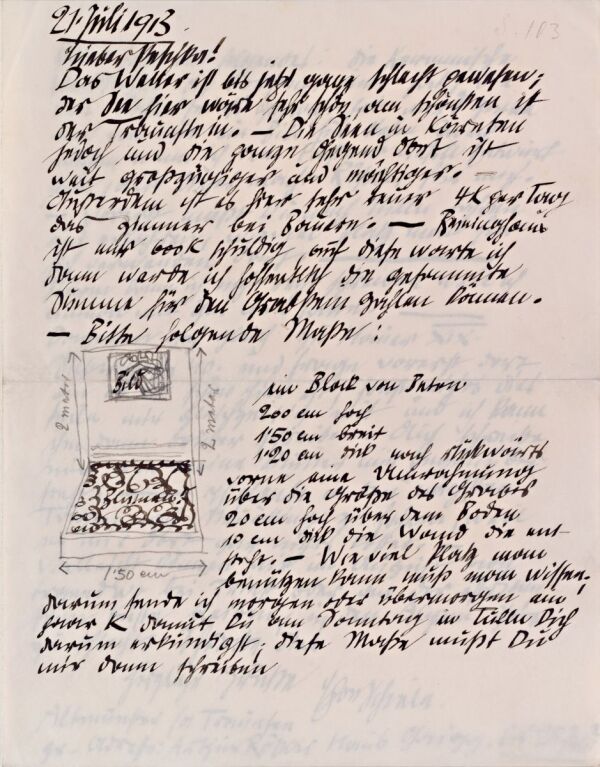 21. Juli 1913
S. 103
Lieber Peschka!
Das Wetter ist bis jetzt ganz schlecht gewesen;
der See hier wäre sehr schön, am schönsten ist
der Traunstein. — Die Seen in Kärnten
jedoch und die ganze Gegend dort ist
weit großzügiger und mächtiger. —
Außerdem ist es hier sehr teuer 4 K per Tag
das Zimmer bei Bauern. — Reininghaus
ist mir 600 K schuldig, auf diese warte ich
dann werde ich hoffentlich die gesammte
Summe für den Grabstein zahlen können.
— Bitte folgende Maße:
Bild
2 meter
2 meter
Blumen
1·50 cm
ein Block von Beton
200 cm hoch
1·50 cm breit
1·20 cm dick nach rückwärts
vorne eine Umrahmung
über die Größe des Grabes
20 cm hoch über dem Boden
10 cm dick die Wand die ent-
steht. — Wie viel Platz man
benützen kann muß man wissen,
darum sende ich morgen oder übermorgen ein
paar K damit Du am Sonntag in Tulln Dich
darum erkundigst; diese Maße mußt Du
mir dann schreiben